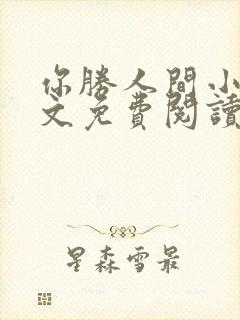 你勝人間小
文免費閱讀
星森雪最